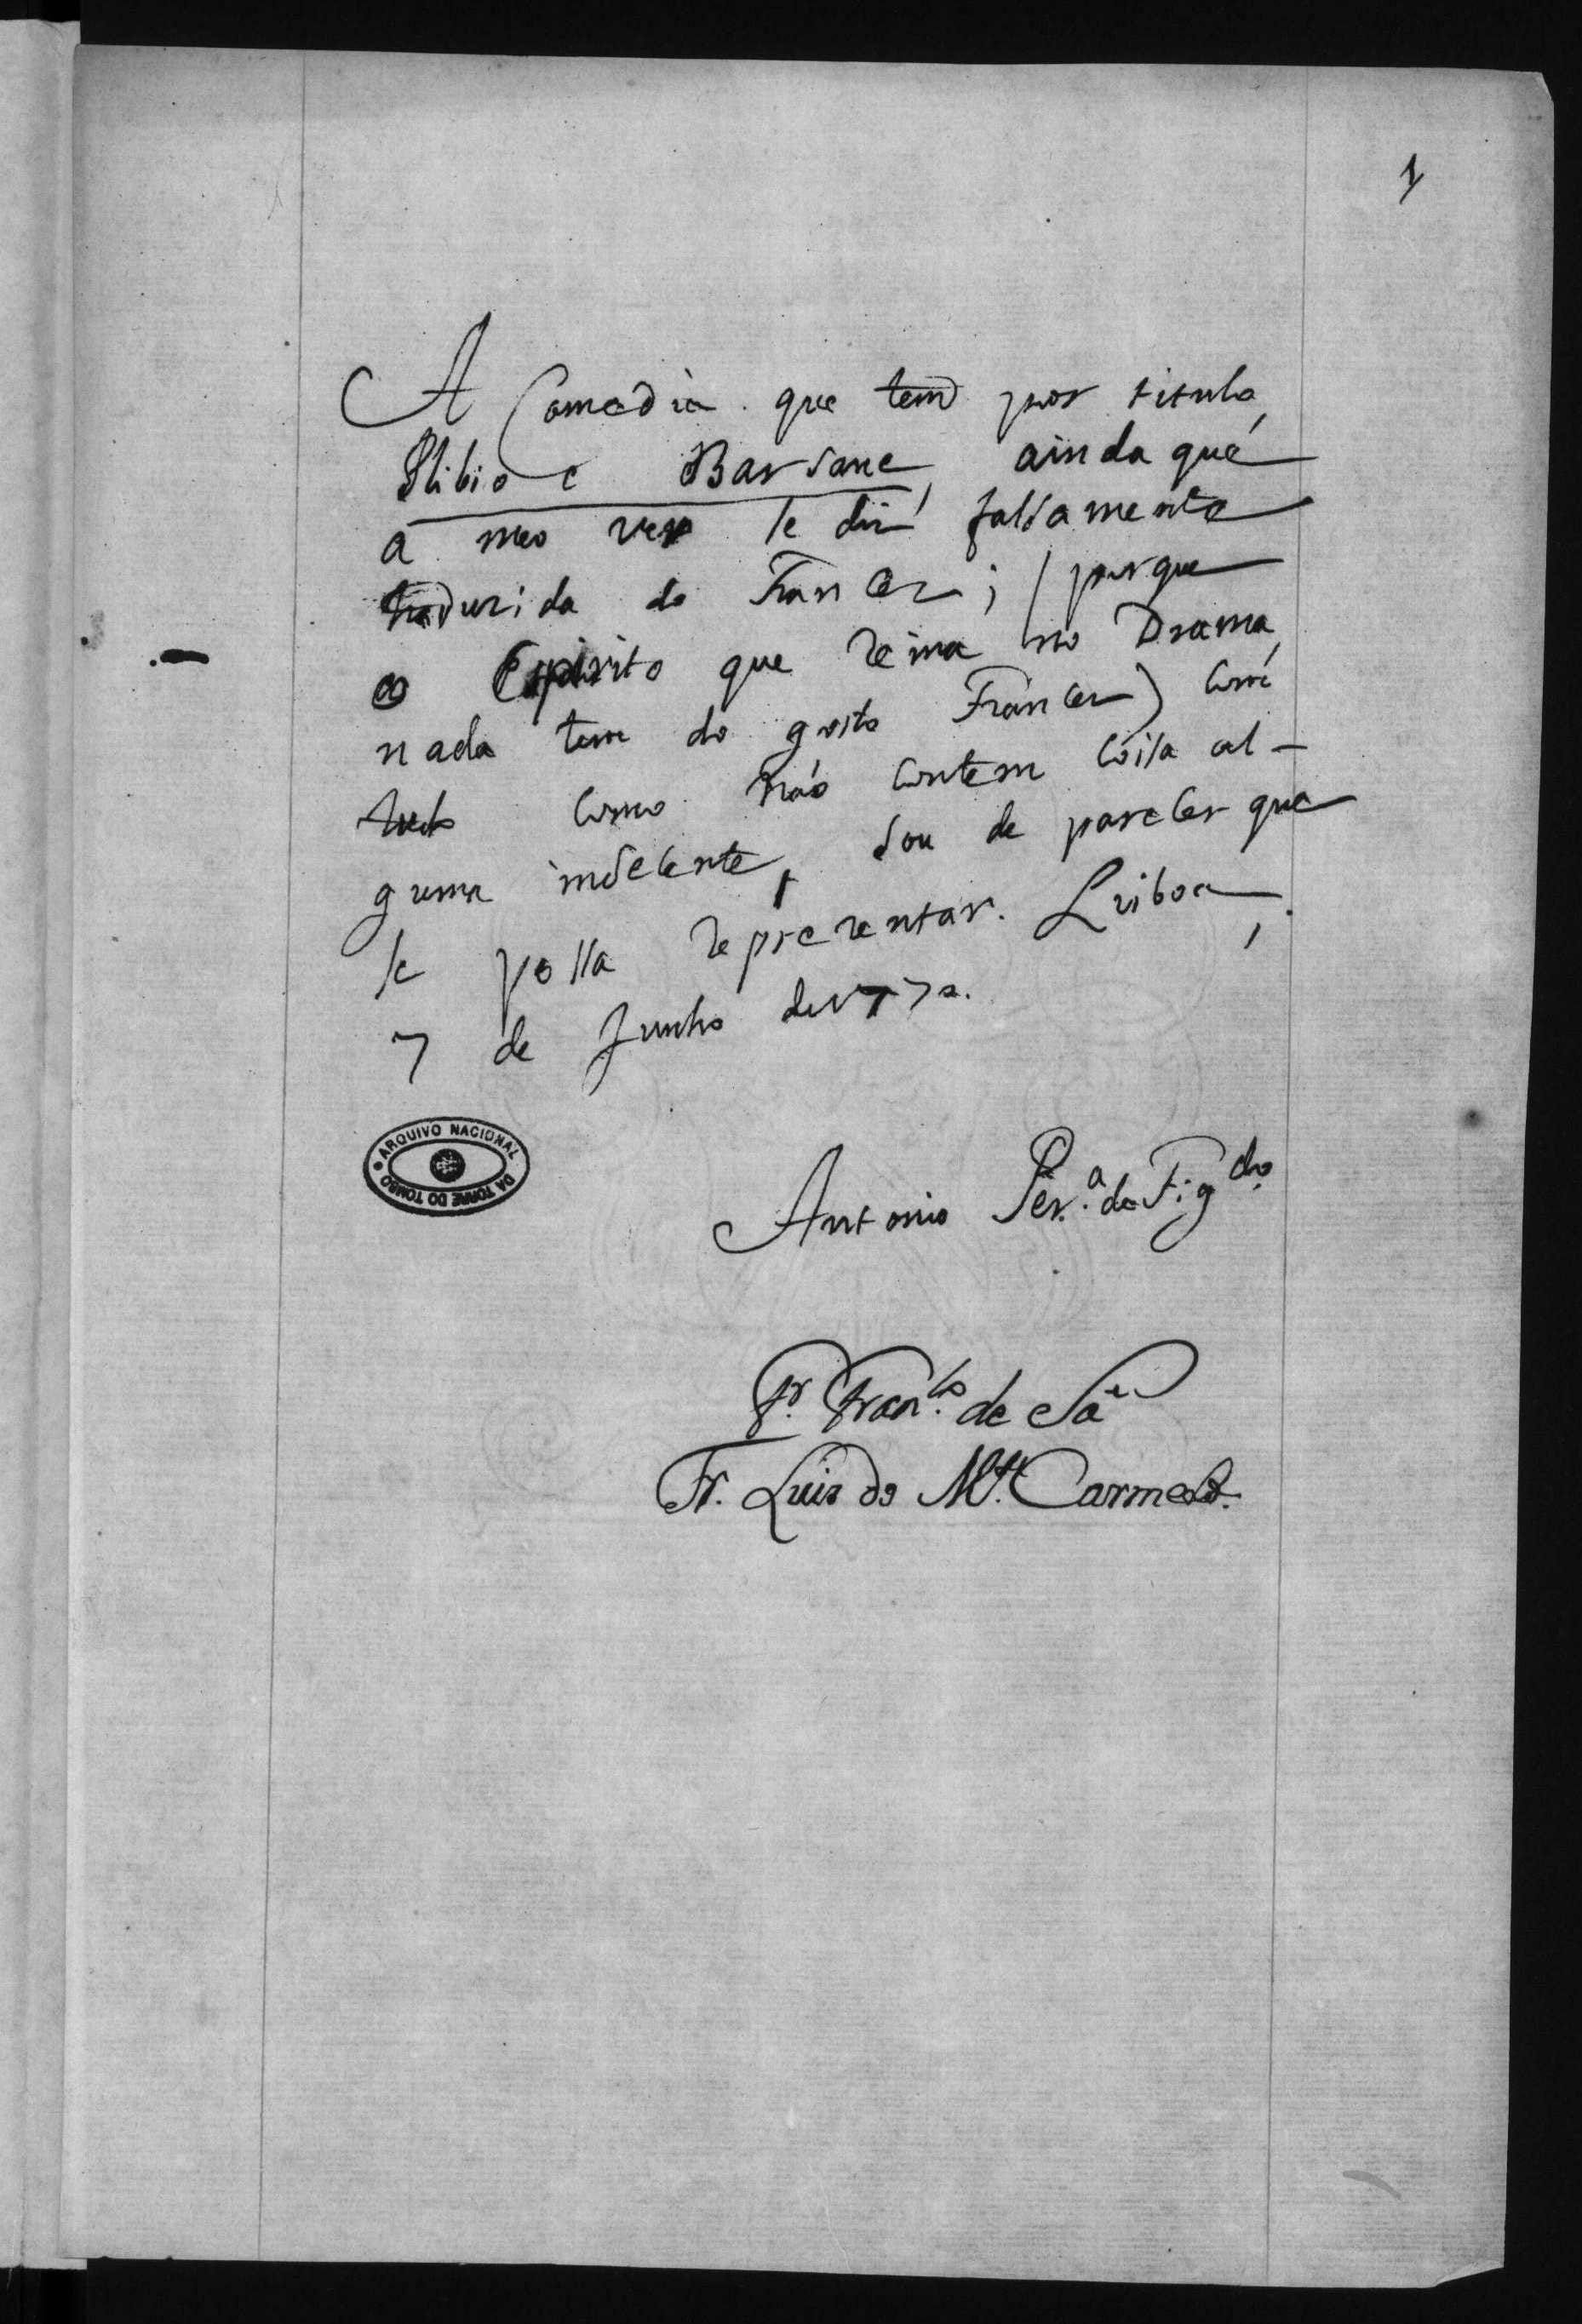 1
A Comedia que tem por titulo
Slibio e Barsane, ainda que
a meo ver se diz falsamente
traduzida do Francez; (porque
o Espirito que reina no Drama
nada tem do gosto Francez) com
tudo como não contem coisa al-
guma indecente, sou de parecer que
se possa reprezentar. Lisboa,
7 de Junho de
Antonio Per.ª de Fig.do
Fr. Fran.co de Sá
Fr. Luis do M.te Carmelo.
ARQUIVO NACIONAL DA TORRE DO TOMBO